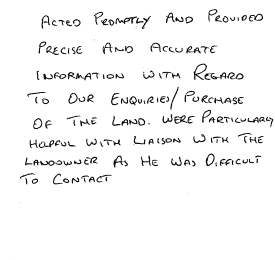 ACTED PROMPTLY AND PROVIDED
PRECISE AND ACCURATE
INFORMATION WITH REGARD
TO OUR ENQUIRIES/PURCHASE
OF THE LAND. WERE PARTICULARLY
HELPFUL WITH LIAISON WITH THE
LANDOWNER AS HE WAS DIFFICULT
TO CONTACT